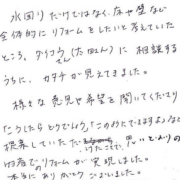 水回りだけではなく、床や壁など
全体的にリフォームをしたいと考えていた
ところ、ダイコウさん(太田さん)に相談する
うちに、カタチが見えてきました。
様々な意見や希望を聞いてくださり
「こうしたらどうでしょう」「このおへやでますよ」など
提案していただ
くださって、思いどおりの
のリフォームが実現しました。
本当にありがとうございました。